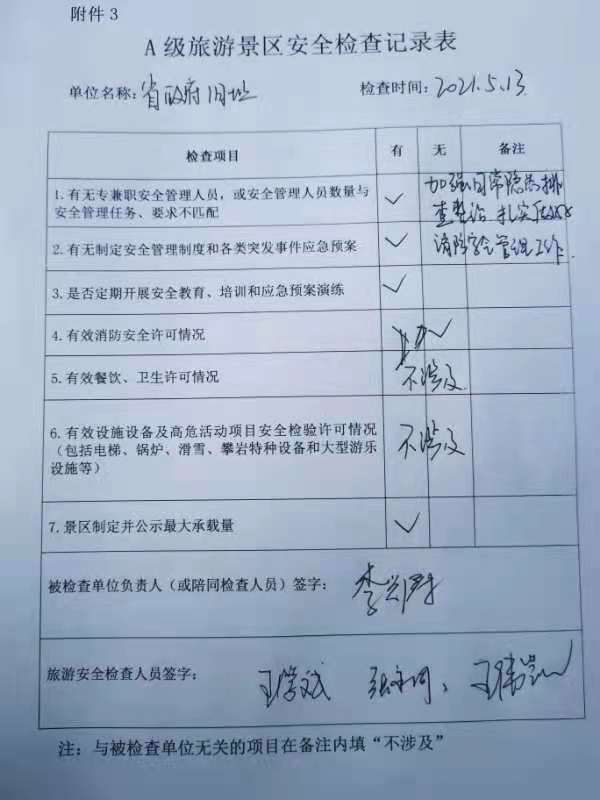 附件 3
A 级旅游景区安全检查记录表
单位名称：省政府旧址 检查时间：2021.5.13
检查项目 有 无 备注
1.有无专兼职安全管理人员，或安全管理人员数量与 ✓ 加强日常隐患排
安全管理任务、要求不匹配 查整治 扎实
2.有无制定安全管理制度和各类突发事件应急预案 ✓ 消防安全管理工作.
3.是否定期开展安全教育、培训和应急预案演练 ✓
4.有效消防安全许可情况 ✓
5.有效餐饮、卫生许可情况 不涉及
6.有效设施设备及高危活动项目安全检验许可情况
（包括电梯、锅炉、滑雪、攀岩特种设备和大型游乐 不涉及
设施等）
7.景区制定并公示最大承载量 ✓
被检查单位负责人（或陪同检查人员）签字：李兴
旅游安全检查人员签字：王学斌
注：与被检查单位无关的项目在备注内填“不涉及”